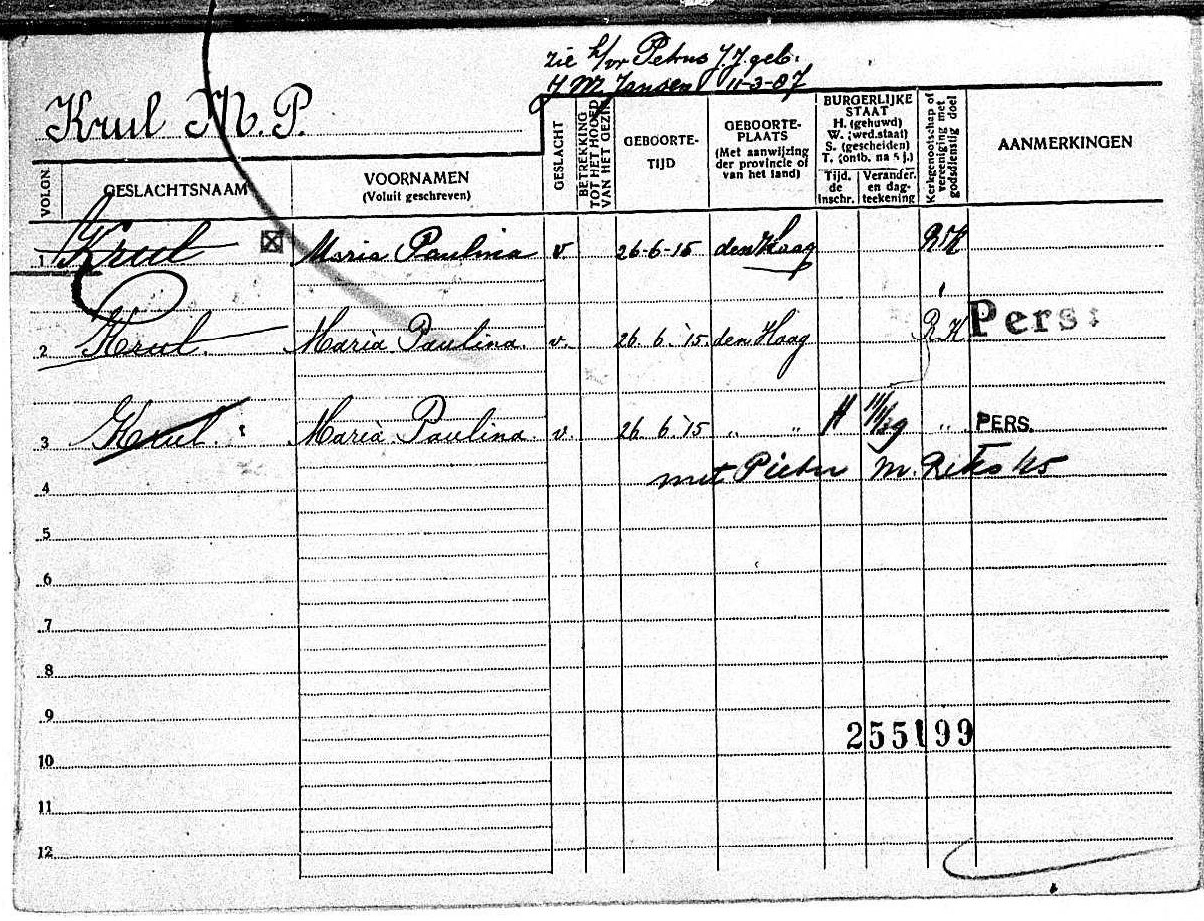 zie h/v Petrus J.J. geb.
J M Jansen 11-3-87
Krul M.P.
VOLGN.
GESLACHTSNAAM
VOORNAMEN
(Voluit geschreven)
GESLACHT
BETREKKING TOT HET HOOFD VAN HET GEZIN
GEBOORTE-
TIJD
GEBOORTE-
PLAATS
(Met aanwijzing
der provincie of
van het land)
BURGERLIJKE
STAAT
H. (gehuwd)
W. (wed.staat)
S. (gescheiden)
T. (ontb. na 5 j.)
Tijd.
de
Inschr.
Verander.
en dag-
teekening
Kerkgenootschap of
vereeniging met
godsdienstig doel
AANMERKINGEN
1 Krul Maria Paulina v 26-6-15 den Haag RK
2 Krul. Maria Paulina. v. 26 6 '15. den Haag RK Pers:
3 Krul. Maria Paulina. v. 26 6 '15 " " H 11/11/39 " PERS.
4 met Pieter M.
5
6
7
8
9
255199
10
11
12